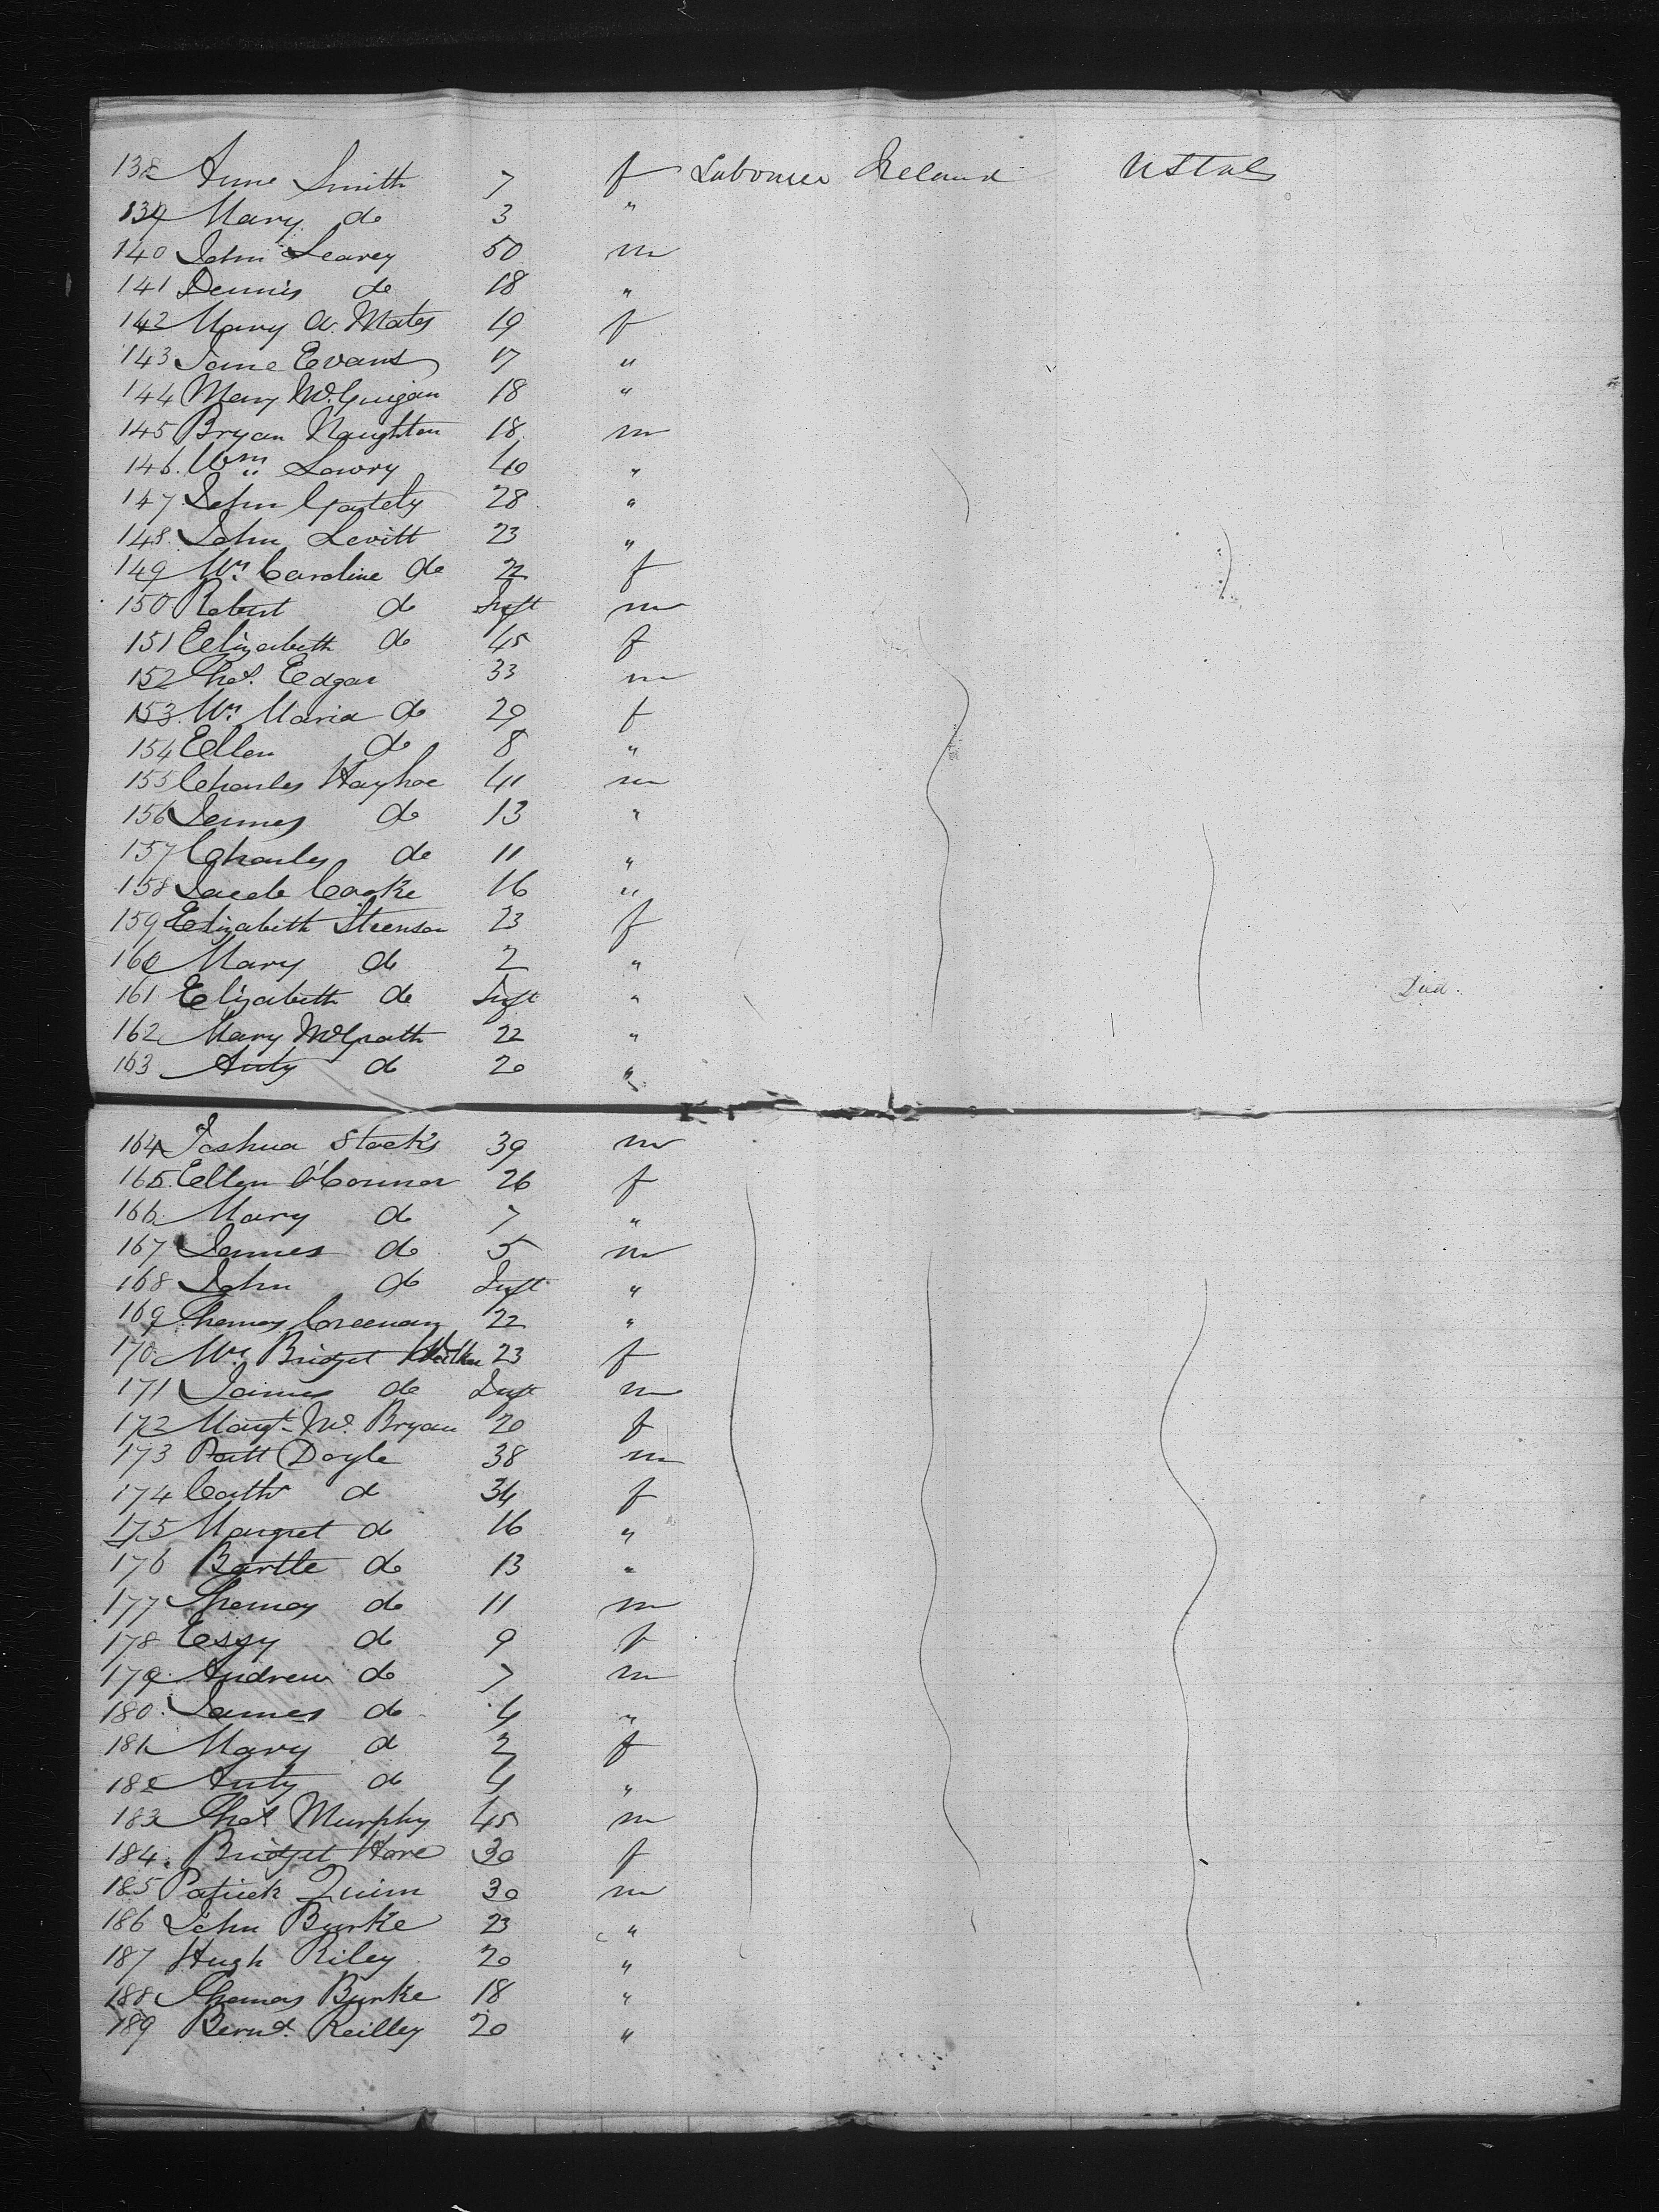 138 Anne Smith 7 f Labourer Ireland U States
139 Mary do 3 "
140 John Leavey 50 m
141 Dennis do 18 "
142 Mary A. Mates 19 f
143 Jane Evans 17 "
144 Mary McGuigan 18 "
145 Bryan Naughton 18 m
146. Wm Lowry 40 "
147 John Gately 28 "
148. John Levitt 23 "
149 Mrs Caroline do 22 f
150 Robert do Inft m
151 Elizabeth do 45 f
152 Thos. Edgar 33 m
153. Mrs Maria do 29 f
154 Ellen do 8 "
155 Charles Hayhoe 41 m
156 James do 13 "
157 Charles do 11 "
158 Jacob Cooke 16 "
159 Elizabeth Steenson 23 f
160 Mary do 2 "
161 Elizabeth do Inft " Died.
162 Mary McGrath 22 "
163 Anty do 20 "
164 Joshua Stocks 39 m
165. Ellen O'Connor 26 f
166 Mary do 7 "
167 James do 5 m
168 John do Inft "
169 Thomas 22 "
170. Mrs Bridget 23 f
171 James do Inft m
172 Margt Mc Bryan 20 f
173 Patt Doyle 38 m
174 Cath do 34 f
175 Margret do 16 "
176 Bartle do 13 "
177 Thomas do 11 m
178 Essy do 9 f
179. Andrew do 7 m
180. James do 4 "
181 Mary do 2 f
182 Anty do 4 "
183 Thos Murphy 45 m
184. Bridget Hore 30 f
185 Patrick Quinn 30 m
186 John Burke 23 "
187 Hugh Riley 20 "
188 Thomas Burke 18 "
189 Bernd. Reilley 20 "